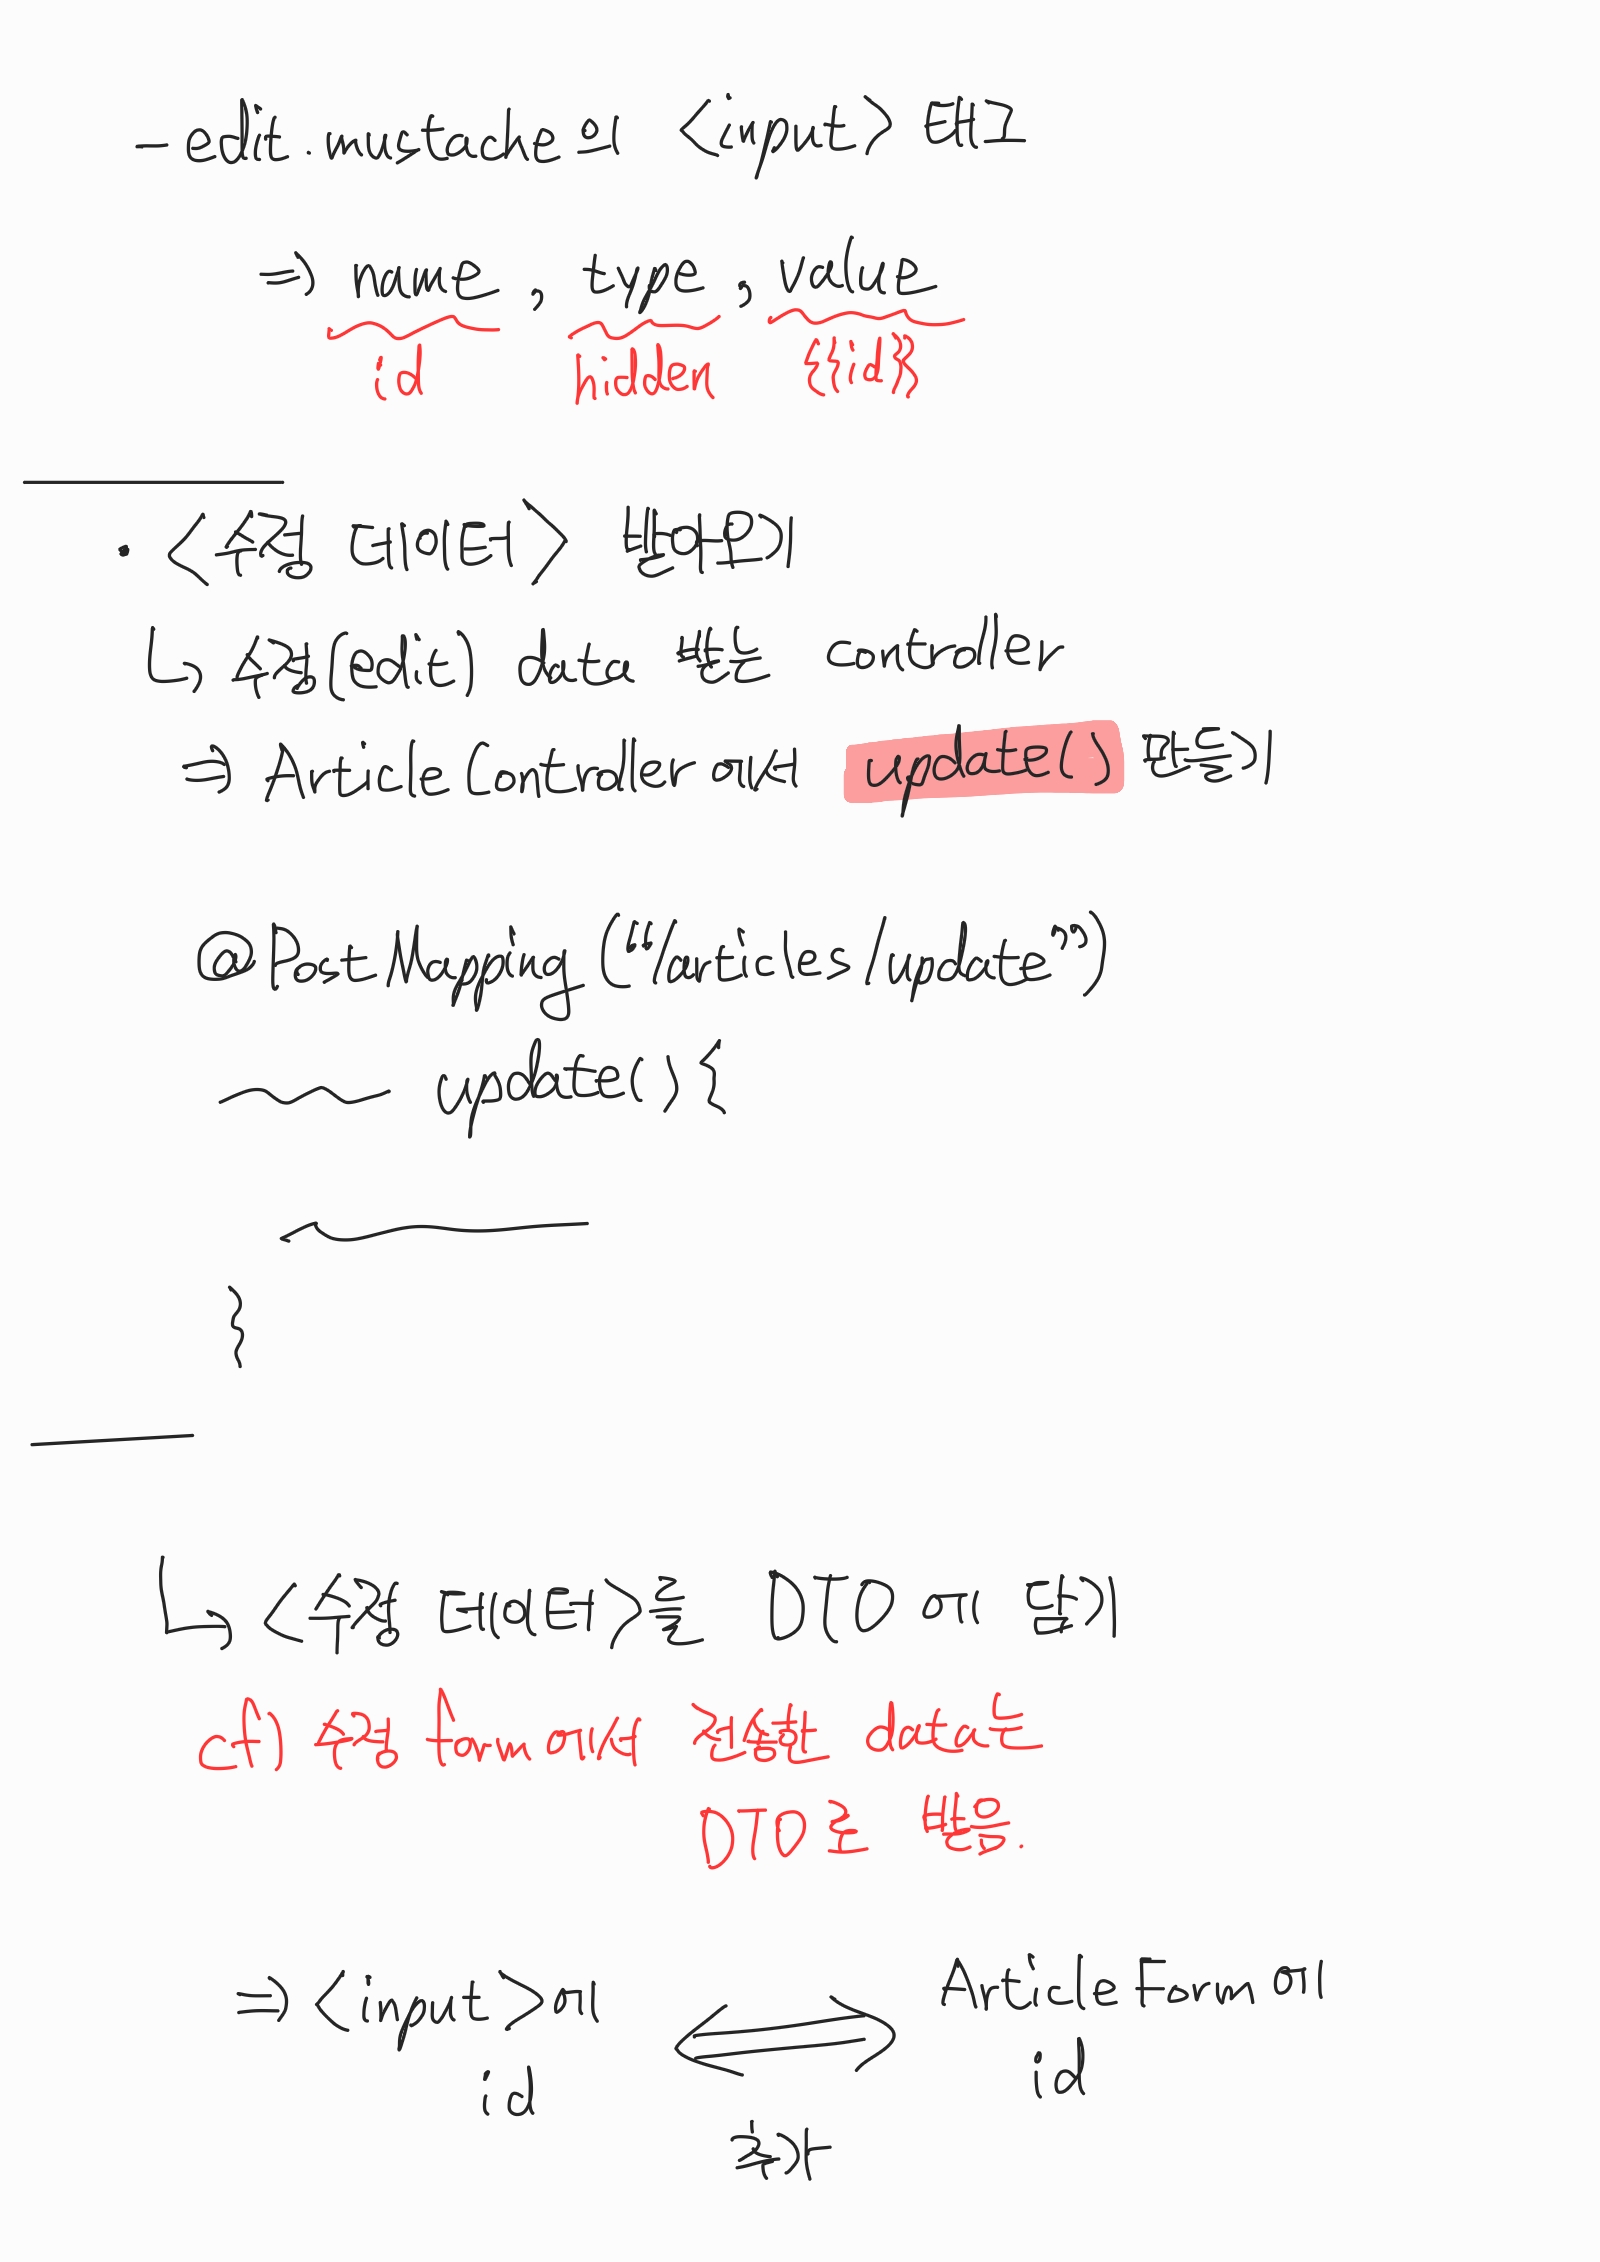 - edit.mustache의 <input> 태그
=> name, type, value
id hidden {{id}}
· <수정 데이터> 받아오기
↳ 수정(edit) data 받는 controller
=> ArticleController에서 update() 만들기
@PostMapping(“/articles/update”)
update(){
}
↳ <수정 데이터>를 DTO에 담기
cf) 수정 form에서 전송한 data는
DTO로 받음.
=> <input>에 <=> ArticleForm에
id id
추가